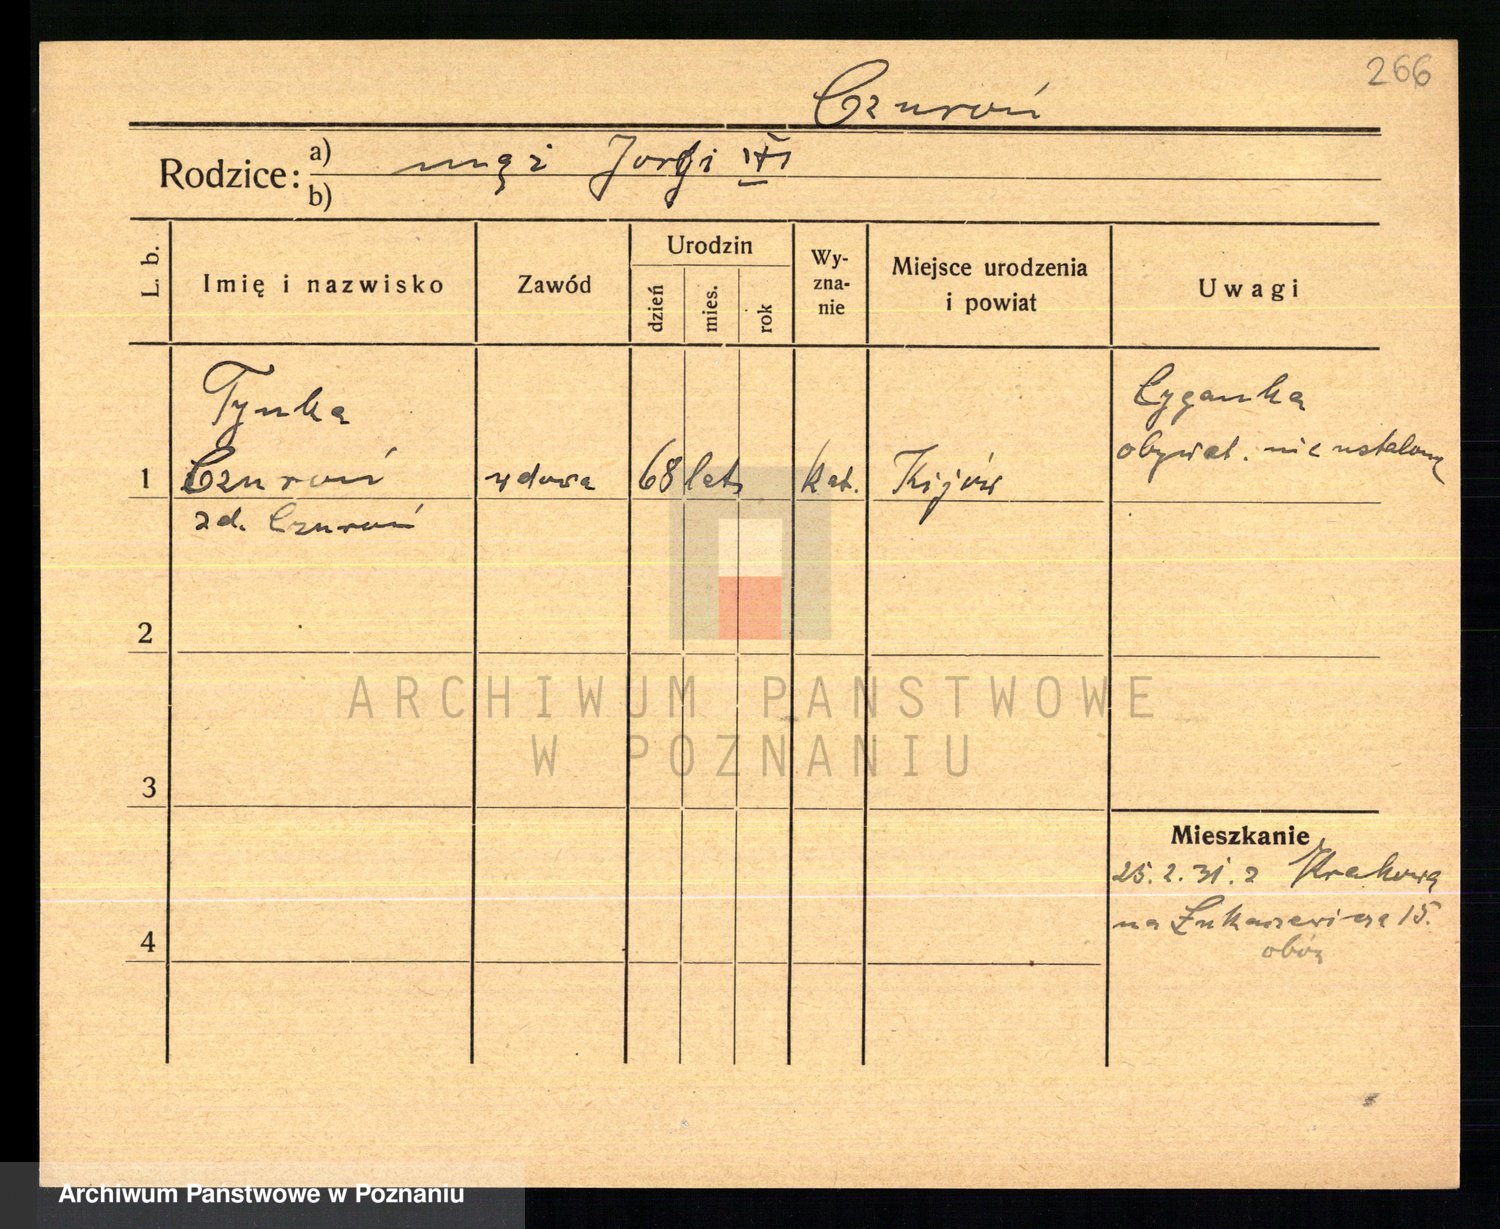 266
Czuroń
Rodzice: a) mąż Jorgi
b)
L. b.
Imię i nazwisko
Zawód
Urodzin
dzień
mies.
rok
Wy-
zna-
nie
Miejsce urodzenia
i powiat
Uwagi
Tynka
1 Czuroń wdowa 68 lat kat. Kijów
zd. Czuroń
Cyganka
obywat. nie ustalone
2
3
4
Mieszkanie
25.2.31. z Krakowa
na Łukaszewicza 15.
obóz
ARCHIWUM PAŃSTWOWE
W POZNANIU
Archiwum Państwowe w Poznaniu